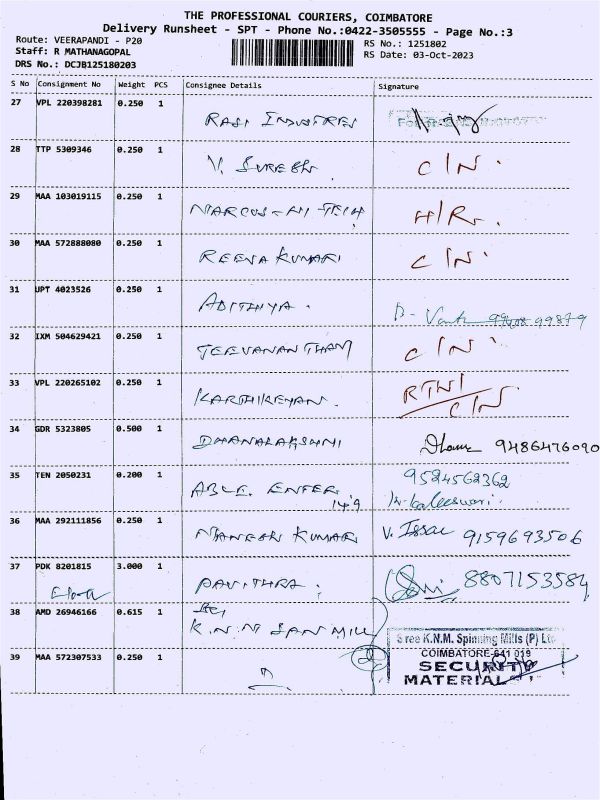 THE PROFESSIONAL COURIERS, COIMBATORE
Delivery Runsheet - SPT - Phone No.:0422-3505555 - Page No.:3
Route: VEERAPANDI - P20
RS No.: 1251802
Staff: R MATHANAGOPAL
RS Date: 03-Oct-2023
DRS No.: DCJB125180203
S No Consignment No Weight PCS Consignee Details Signature
27 VPL 220398281 0.250 1 RAJI INDUSTRES
28 TTP 5309346 0.250 1 V. SURESH. C/N.
29 MAA 103019115 0.250 1 H/R.
30 MAA 572888080 0.250 1 REENA KUMARI C/N.
31 UPT 4023526 0.250 1 ADITHYA.
32 IXM 504629421 0.250 1 JEEVANANTHAM C/N.
33 VPL 220265102 0.250 1 KARTHIKEYAN. RTN/ C/N.
34 GDR 5323805 0.500 1 DHANALAKSHMI 9486476090
35 TEN 2050231 0.200 1 ABLE 9524562362
36 MAA 292111856 0.250 1 KUMAR V. Issac 9159693506
37 PDK 8201815 3.000 1 PAVITHRA. 8807153584
38 AMD 26946166 0.615 1 K.N.M MILL
Sree K.N.M. Spinning Mills (P) Ltd
COIMBATORE-641 019
39 MAA 572307533 0.250 1
SECURITY
MATERIAL